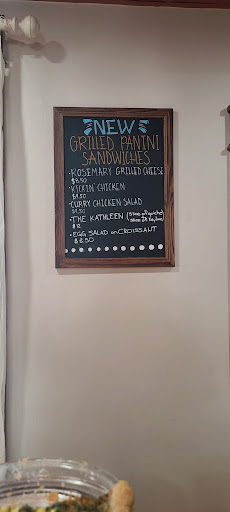 NEW
GRILLED PANINI
SANDWICHES
• ROSEMARY GRILLED CHEESE
$8.50
• KICKIN' CHICKEN
$9.50
• CURRY CHICKEN SALAD
$9.50
• THE KATHLEEN (Slice of quiche/
slice of
$12
• EGG SALAD on CROISSANT
$8.50